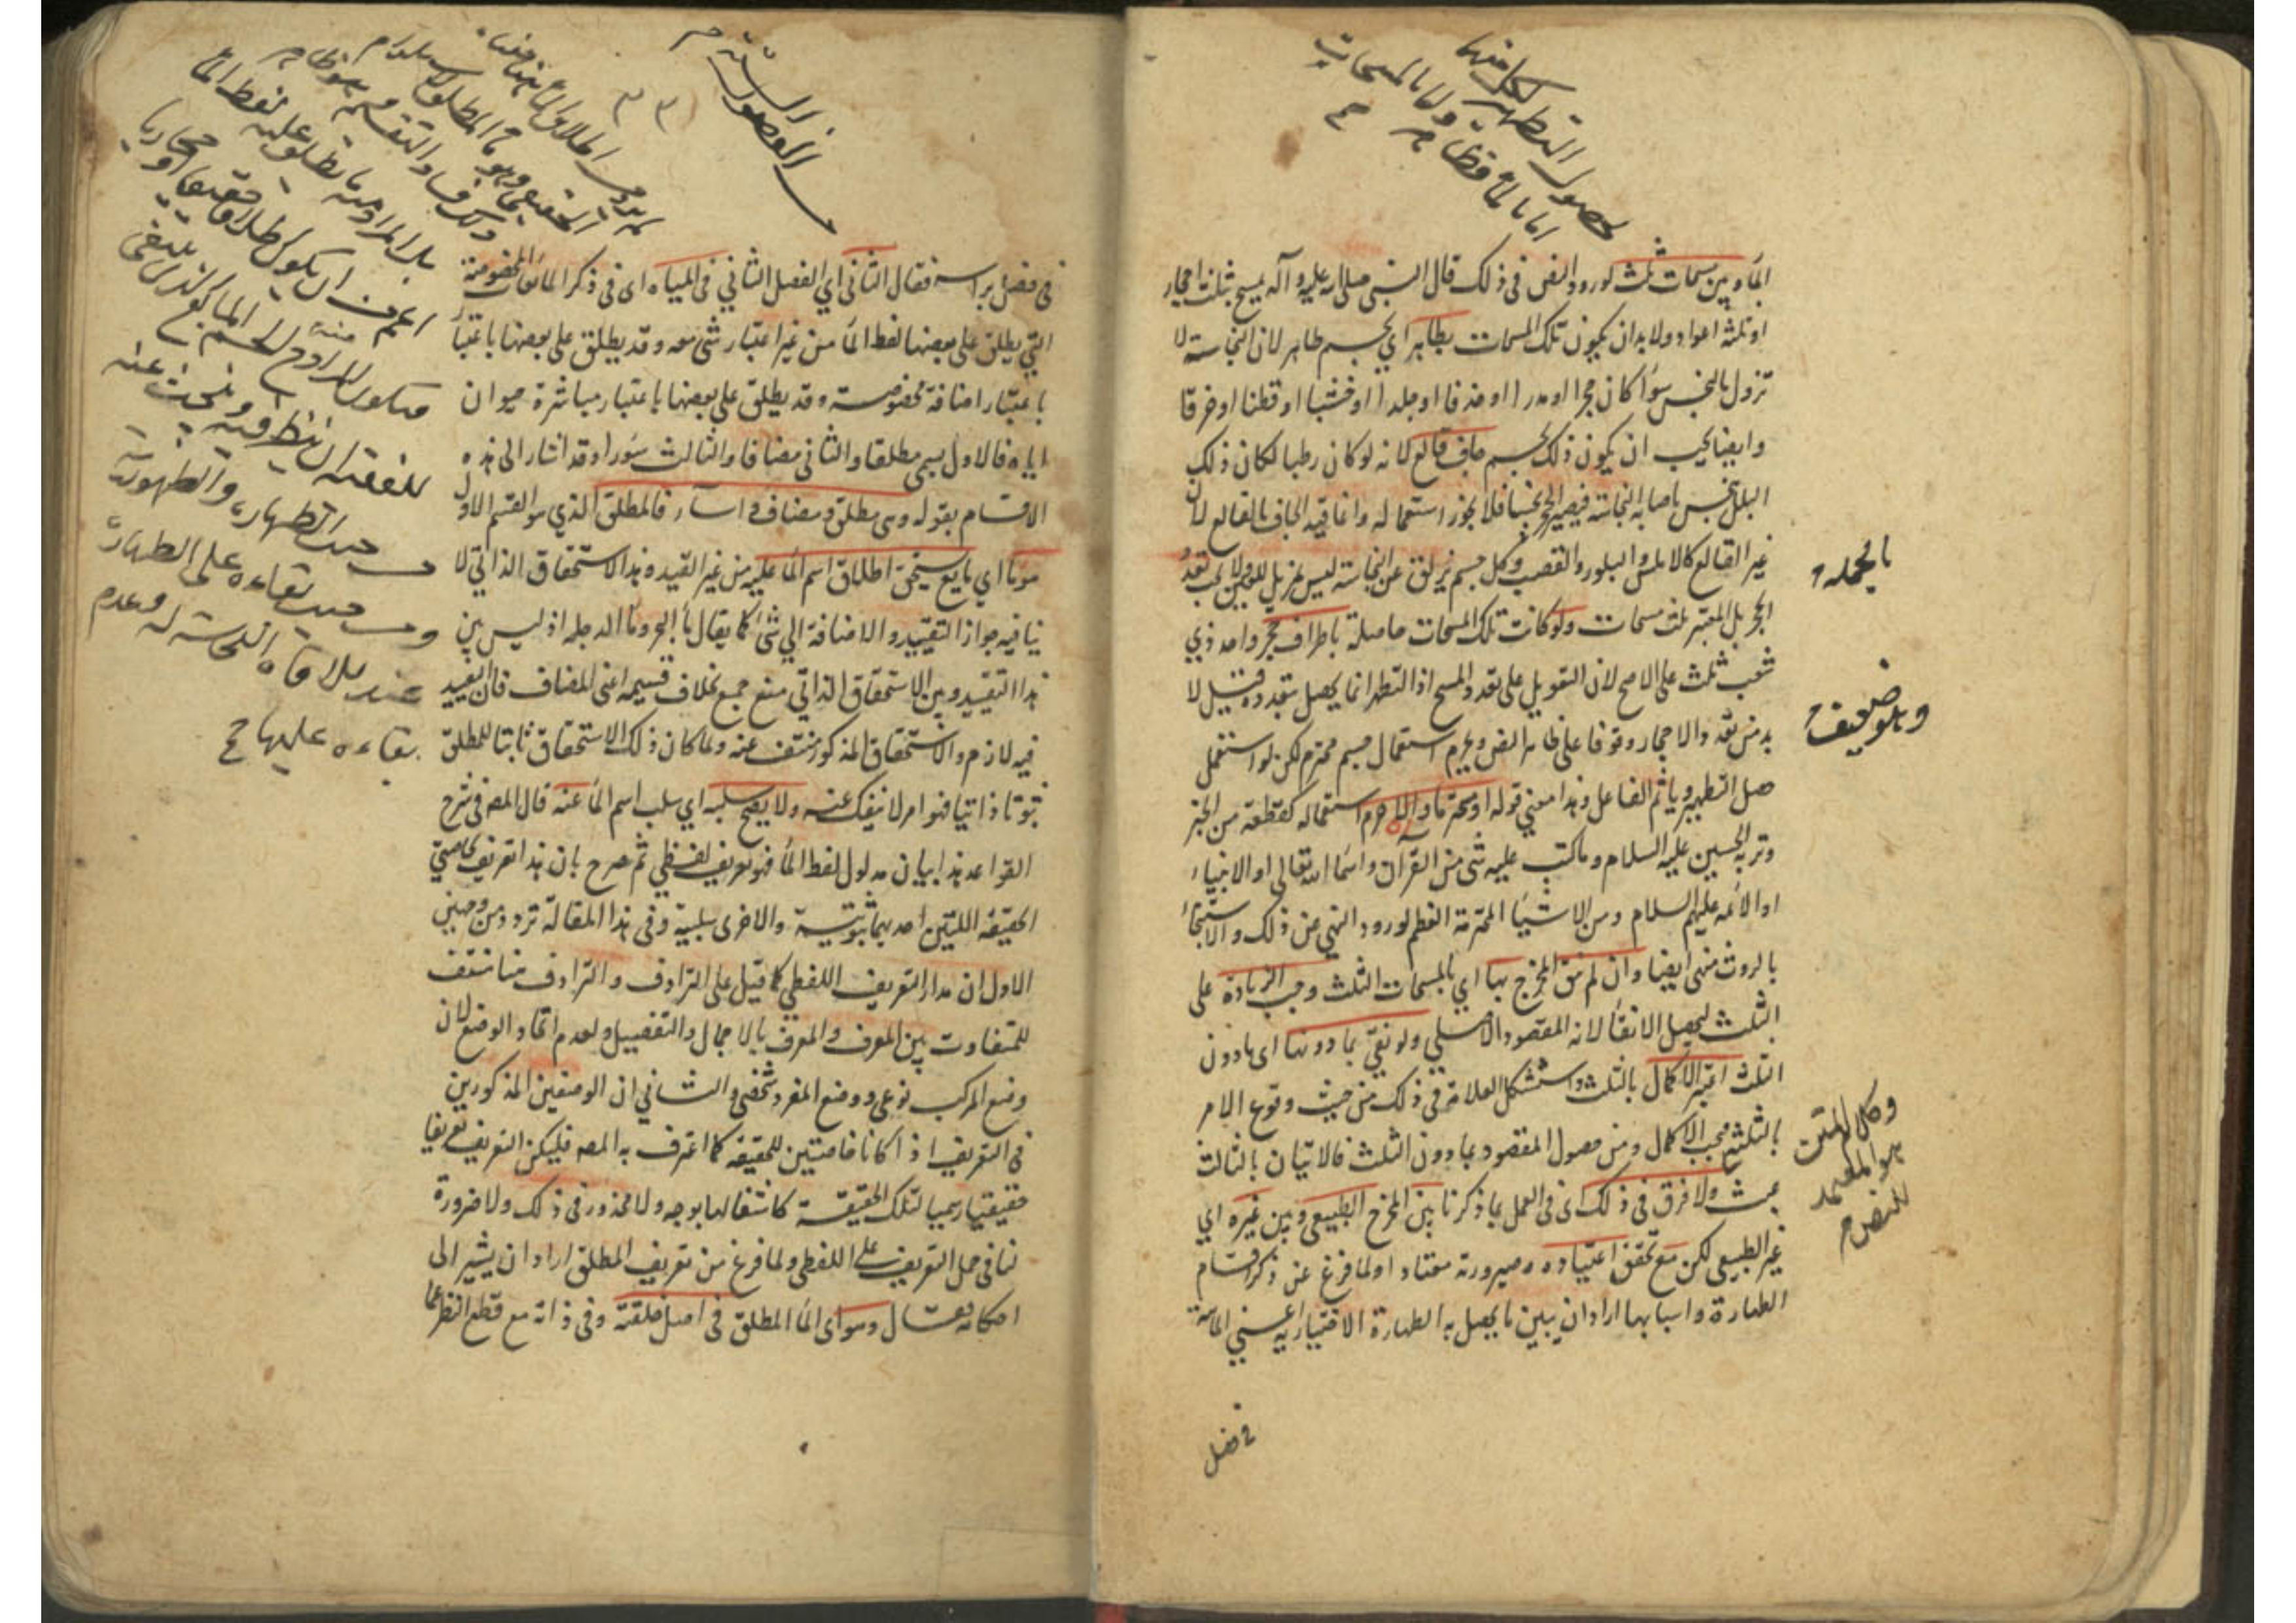 لحصول التطهير لكل منهما
اما بالماء فظاهر واما بالمسحات
الماء وبين مسحات ثلث لورود النص في ذلك قال النبي صلى الله عليه وآله يمسح بثلث احجار
او ثلثة اعواد ولا بد ان يكون تلك المسحات بطاهر اي بجسم طاهر لان النجاسة لا
تزول بالنجس سواء كان حجرا او مدرا او خزفا او جلدا او خشبا او قطنا او خرقا
وايضا يجب ان يكون ذلك الجسم جاف قالع لانه لو كان رطبا لكان ذلك
البلل ينجس باصابة النجاسة فيصير الحجر نجسا فلا يجوز استعماله وانما قيد الجاف بالقالع لان
غير القالع كالاملس والبلور والقصب وكل جسم يزلق عن النجاسة ليس بمزيل للعين ولا يجب تعدد
الحجر بل المعتبر ثلث مسحات ولو كانت تلك المسحات حاصلة باطراف حجر واحد ذي
شعب ثلث على الاصح لان التعويل على تعدد المسح اذ التطهر انما يحصل بتعدده وقيل لا
بد من تعدد الاحجار وقوفا على ظاهر النص ويحرم استعمال جسم محترم لكن لو استعمل
حصل التطهير وياثم الفاعل وهذا معنى قوله او محترما والا حرم استعماله كقطعة من الخبز
وتربة الحسين عليه السلام وما كتب عليه شئ من القرآن واسماء الله تعالى او الانبياء
او الائمة عليهم السلام ومن الاشياء المحترمة العظم لورود النهي عن ذلك والاستنجاء
بالروث منهى ايضا وان لم ينق المخرج بها اي بالمسحات الثلث وجب الزيادة على
الثلث ليحصل الانقاء لانه المقصود الاصلي ولو نقي بما دونها اى بما دون
الثلث اعتبر الاكمال بالثلث واستشكل العلامة في ذلك من حيث وقوع الامر
بالثلثة فيجب الاكمال ومن حصول المقصود بما دون الثلث فالاتيان بالثالث
عبث ولا فرق في ذلك اى في العمل بما ذكرنا بين المخرج الطبيعي وبين غيره اي
غير الطبيعي لكن مع تحقق اعتياده وصيرورته معتادا ولما فرغ عن ذكر اقسام
الطهارة واسبابها اراد ان يبين ما يحصل به الطهارة الاختيارية اعني المائية
بالجملة
وهو ضعيف
وكلام المتن
هو المعتمد
للنص
في فصل
٣٣
في فصل براسه فقال الثاني اي الفصل الثاني في المياه اى في ذكر المائعات المخصوصة
التي يطلق على بعضها لفظ الماء من غير اعتبار شئ معه وقد يطلق على بعضها باعتبار
باعتبار اضافة مخصوصة وقد يطلق على بعضها باعتبار مباشرة حيوان
اياه فالاول يسمى مطلقا والثاني مضافا والثالث سؤرا وقد اشار الى هذه
الاقسام بقوله وهى مطلق ومضاف واسآر فالمطلق الذي هو القسم الاول
هو ما اي مايع يستحق اطلاق اسم الماء عليه من غير القيد وهذا الاستحقاق الذاتي لا
ينافيه جواز التقييد والاضافة الي شئ كما يقال ماء البحر وماء الدجلة اذ ليس بين
هذا التقييد وبين الاستحقاق الذاتي منع جمع بخلاف قسيمه اعني المضاف فان التقييد
فيه لازم والاستحقاق المذكور منتف عنه ولما كان ذلك الاستحقاق ثابتا للمطلق
ثبوتا ذاتيا فهو امر لا ينفك عنه ولا يصح سلبه اي سلب اسم الماء عنه قال المصه في شرح
القواعد هذا بيان مدلول لفظ الماء فهو تعريف لفظي ثم صرح بان هذا تعريف بخاصتي
الحقيقة اللتين احديهما ثبوتية والاخرى سلبية وفي هذا المقالة تردد من وجهين
الاول ان مدار التعريف اللفظي كما قيل على الترادف والترادف هنا منتف
للتفاوت بين المعرف والمعرف بالاجمال والتفصيل ولعدم اتحاد الوضع لان
وضع المركب نوعي ووضع المفرد شخصي والثاني ان الوصفين المذكورين
في التعريف اذ اكانا خاصتين للحقيقة كما اعترف به المصه فليكن التعريف تعريفا
حقيقيا رسميا لتلك الحقيقة كاشفا لها بوجه ولا محذور في ذلك ولا ضرورة
لنا في حمل التعريف على اللفظي ولما فرغ من تعريف المطلق اراد ان يشير الى
احكامه فقال وهو اى الماء المطلق في اصل خلقته وفي ذاته مع قطع النظر عما
بل المراد منه ما يطلق عليه لفظ الماء
اعم من ان يكون اطلاقه حقيقيا او مجازيا
للفقيه ان ينظر فيه ويبحث عنه
من حيث الطهارة والطهورية
ومن حيث بقاءه على الطهارة
عند ملاقاه النجاسة له وعدم
بقاءه عليها